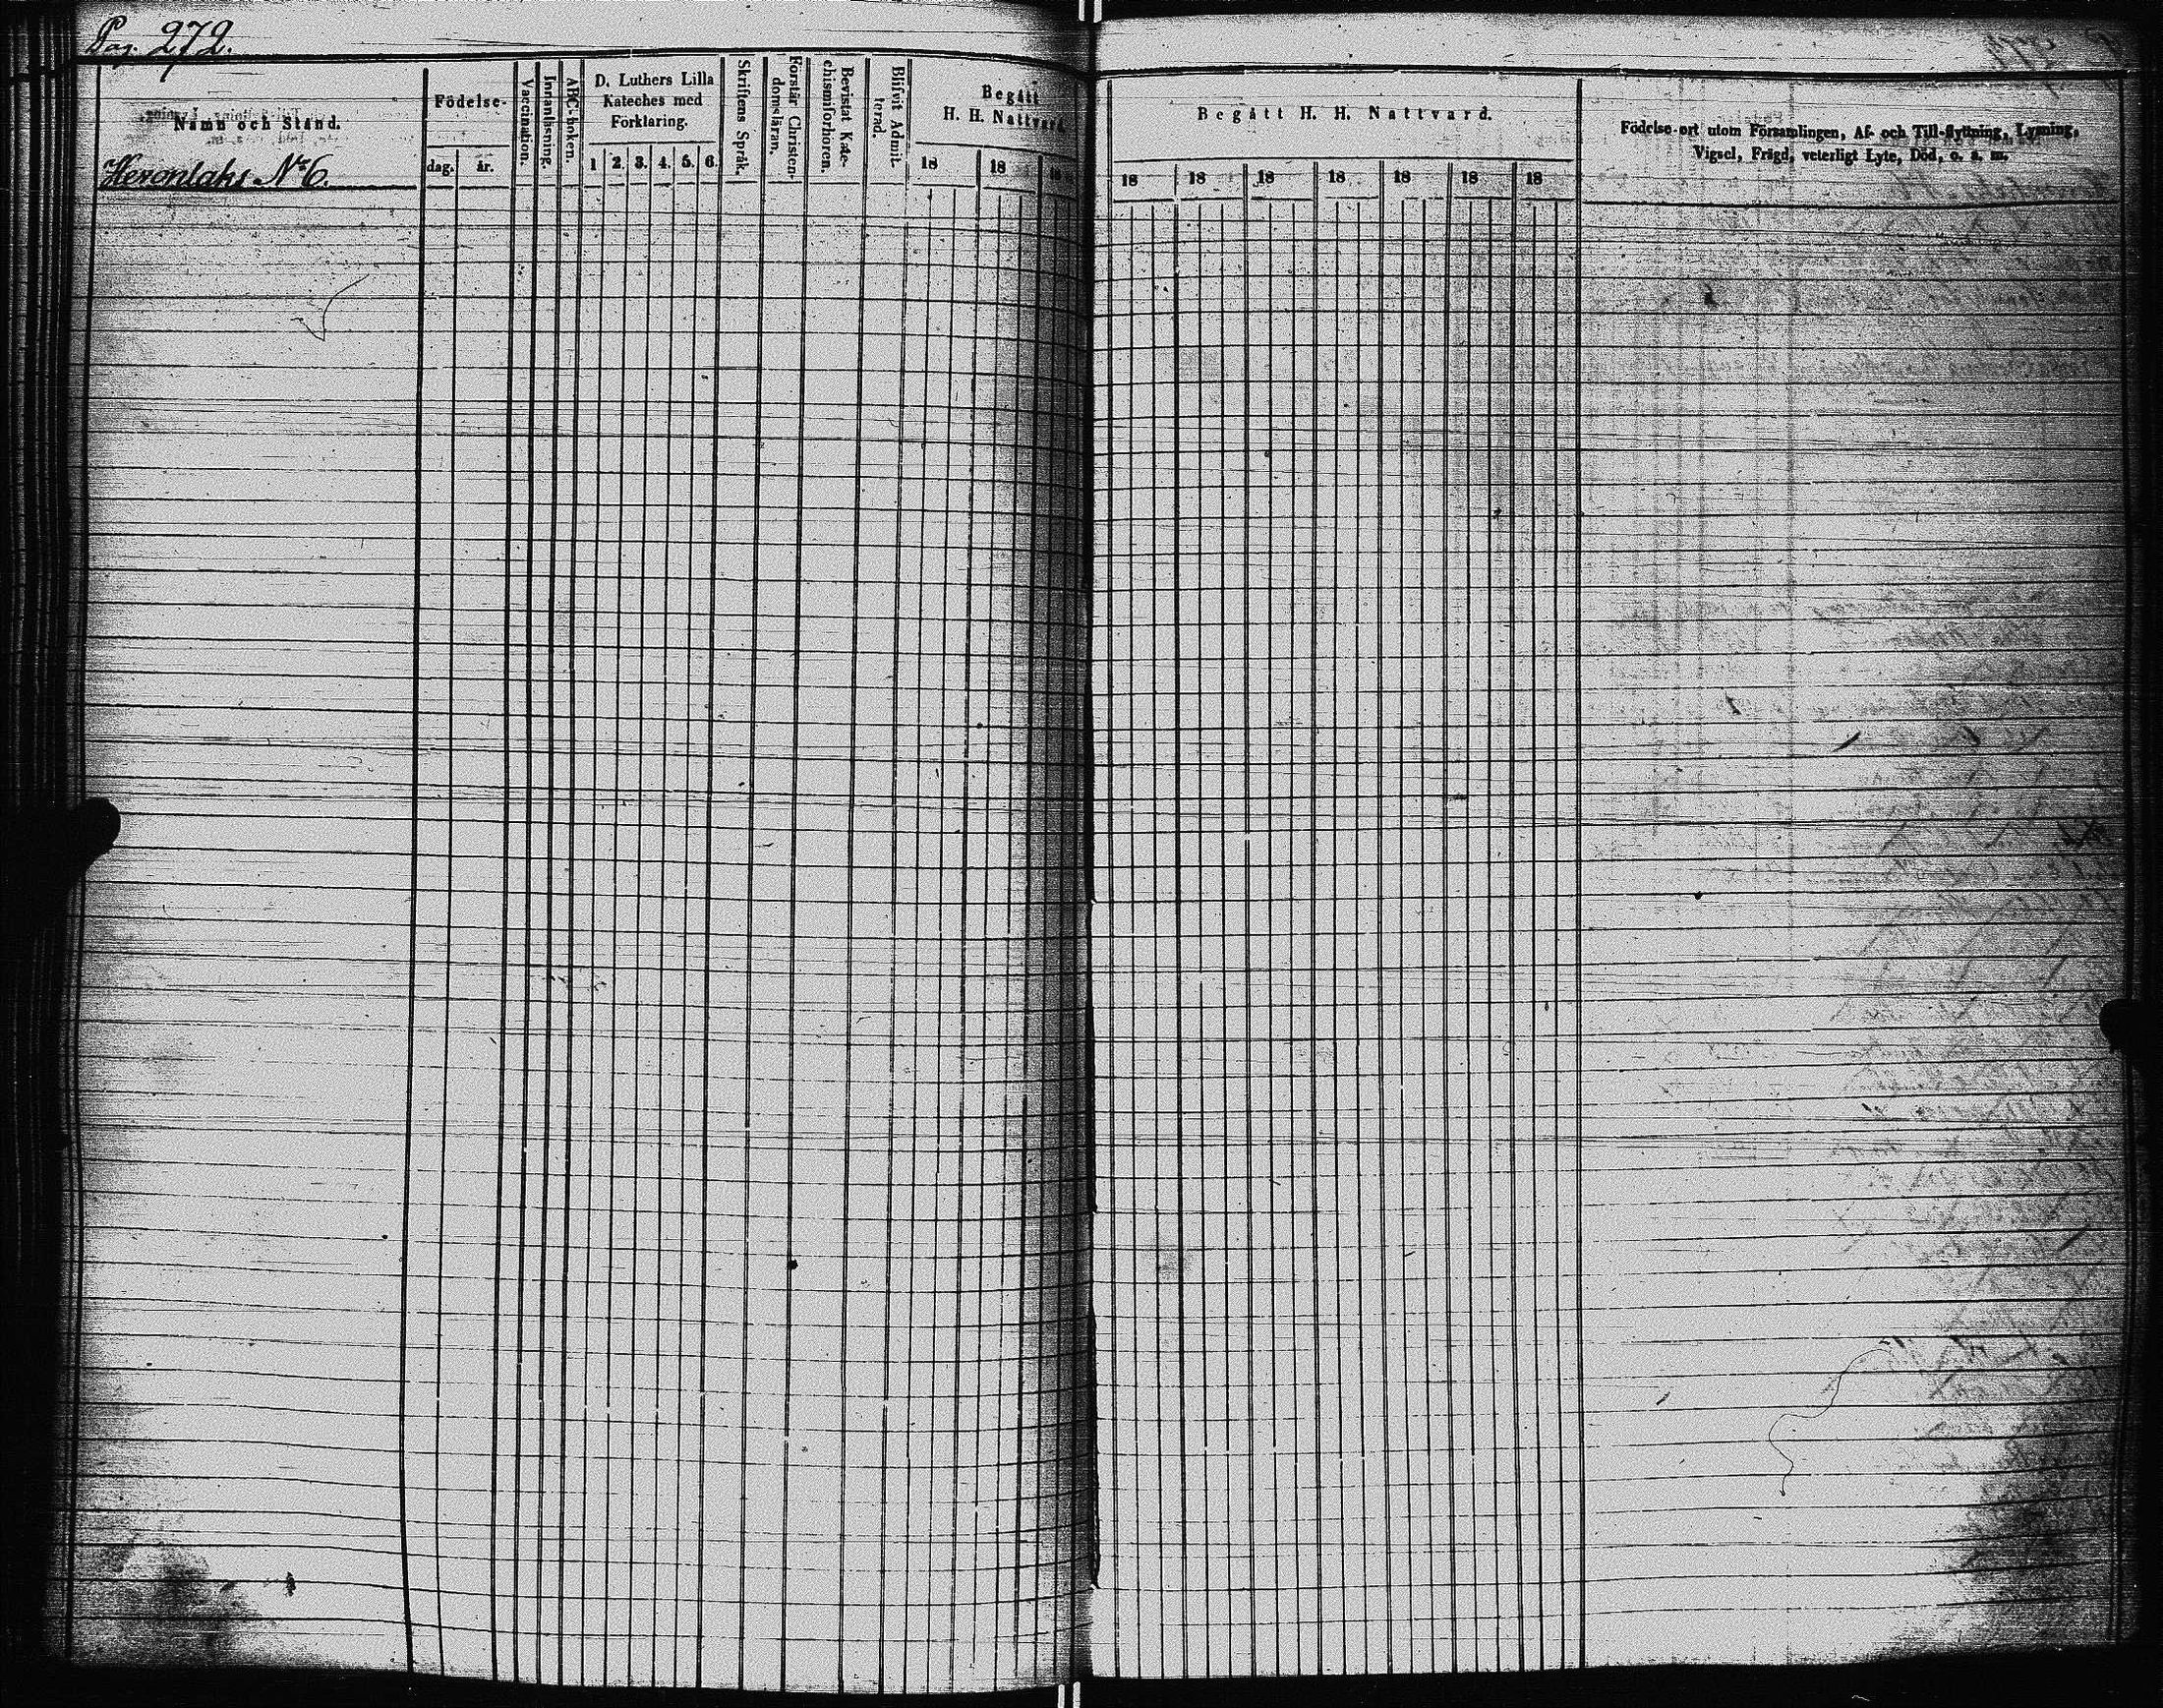 Pag. 272.
Namn och Stånd.
Heronlaks No 6.
Födelse-
dag.
år.
Vaccination.
Innanläsning.
ABC-boken.
D. Luthers Lilla
Kateches med
Förklaring.
1 2. 3. 4. 5. 6.
Skriftens Språk.
Förstår Christen-
domsläran.
Bevistat Kate-
chismiförhören.
Blifvit Admit-
terad.
Begått
H. H. Nattvard.
18 18 18
Begått H. H. Nattvard.
18 18 18 18 18 18 18
Födelse-ort utom Församlingen, Af- och Till-flyttning, Lysning,
Vigsel, Frägd, veterligt Lyte, Död, o. s. m.